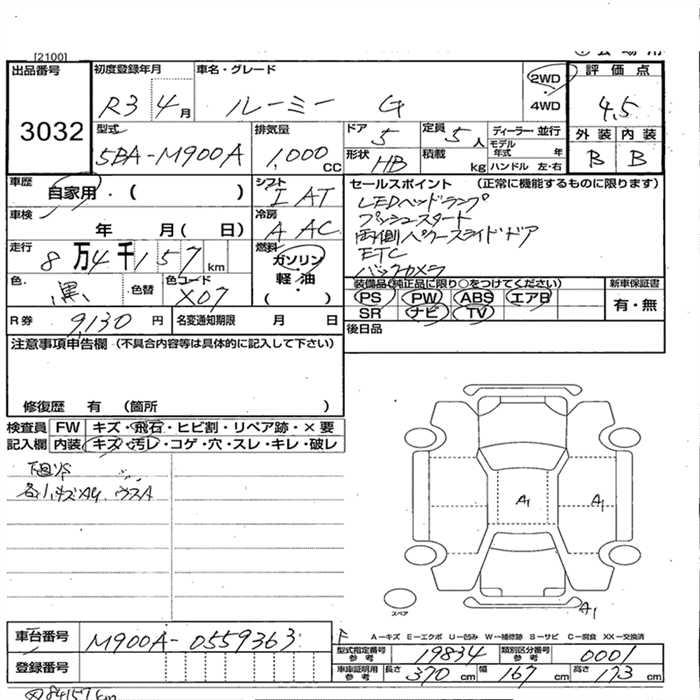 [2100]
出品番号 初度登録年月 車名・グレード 2WD 評価点
3032 R3 4月 ルーミー G 4WD 4.5
型式 排気量 ドア 定員 ディーラー・並行 外装 内装
5BA-M900A 1,000cc 5 5人 モデル年式 年 B B
形状 HB 積載 kg ハンドル 左・右
車歴 自家用・( ) シフト I AT セールスポイント (正常に機能するものに限ります)
車検 年 月( 日) 冷房 A AC LEDヘッドランプ
プッシュスタート
走行 8万4千157km 燃料 ガソリン・軽油・( ) 両側パワースライドドア
ETC
バックカメラ
色 黒 色替 色コード X07 装備品(純正品に限り○をつけてください) 新車保証書
PS PW ABS エアB 有・無
SR ナビ TV
R券 9,130円 名変通知期限 月 日 後日品
注意事項申告欄 (不具合内容等は具体的に記入して下さい)
修復歴 有 (箇所 )
検査員 FW キズ・飛石・ヒビ割・リペア跡・×要
記入欄 内装 キズ・汚レ・コゲ・穴・スレ・キレ・破レ
A1 A1
スペア A1
A−キズ E−エクボ U−凹み W−補修跡 S−サビ C−腐食 XX−交換済
車台番号 M900A-0559363
型式指定番号 参考 19834 類別区分番号 参考 0001
登録番号 車庫証明用 参考 長さ 370cm 幅 167cm 高さ 173cm
84157km